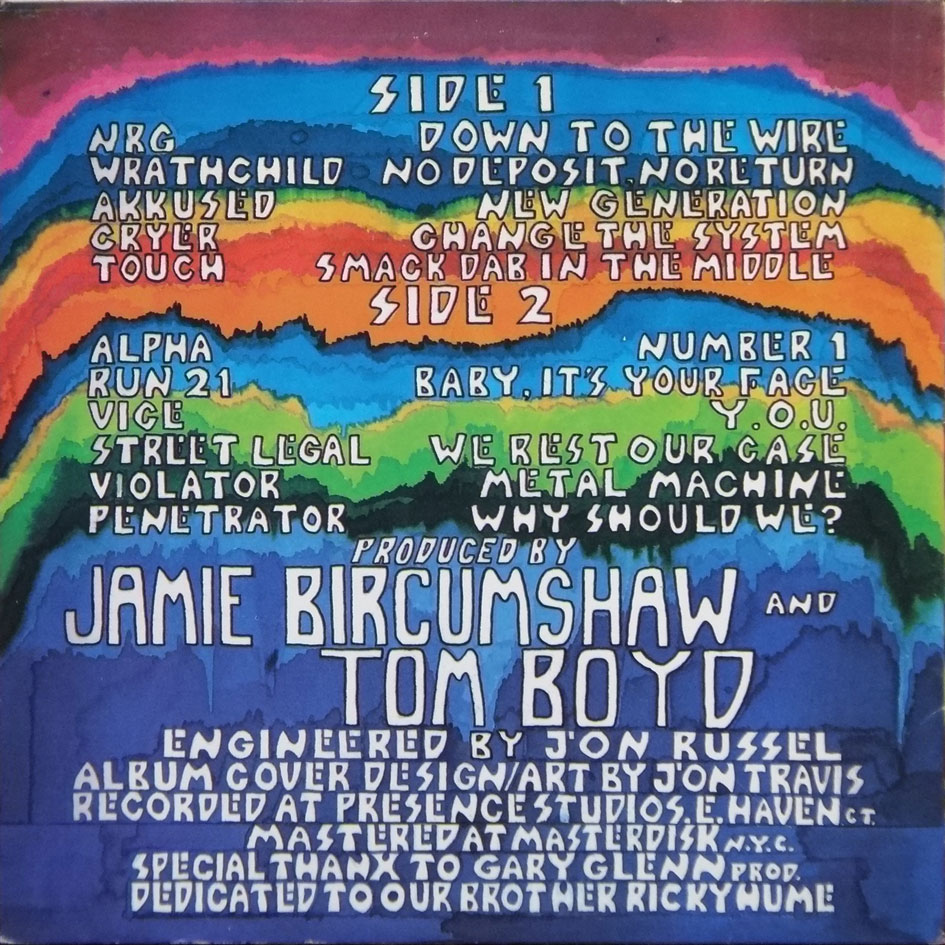 SIDE 1
NRG DOWN TO THE WIRE
WRATHCHILD NO DEPOSIT, NO RETURN
AKKUSED NEW GENERATION
CRYER CHANGE THE SYSTEM
TOUCH SMACK DAB IN THE MIDDLE
SIDE 2
ALPHA NUMBER 1
RUN 21 BABY, IT'S YOUR FACE
VICE Y.O.U.
STREET LEGAL WE REST OUR CASE
VIOLATOR METAL MACHINE
PENETRATOR WHY SHOULD WE?
PRODUCED BY
JAMIE BIRCUMSHAW AND
TOM BOYD
ENGINEERED BY J'ON RUSSEL
ALBUM COVER DESIGN/ART BY J'ON TRAVIS
RECORDED AT PRESENCE STUDIOS, E. HAVEN CT.
MASTERED AT MASTERDISK N.Y.C.
SPECIAL THANX TO GARY GLENN PROD.
DEDICATED TO OUR BROTHER RICKY HUME